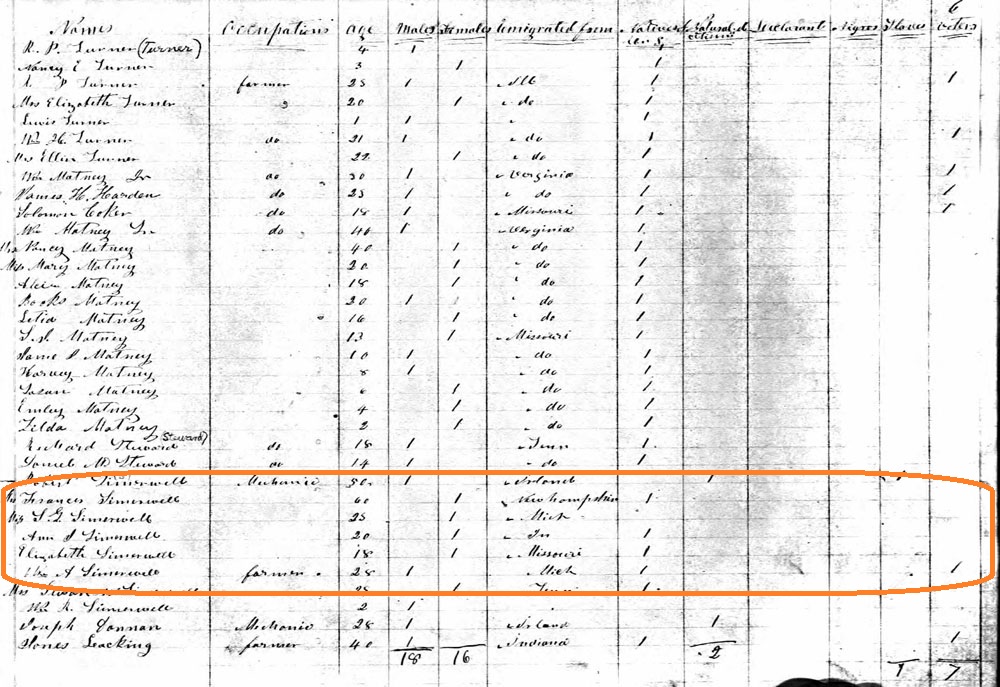 6
Names Occupations age Males Females Emigrated from Natives of U.S. Natural.d citizens Declarant Negroes Slaves Voters
R. P. Turner (Turner) 4 1 1
Nancy E Turner 3 1 1
P Turner farmer 25 1 Ills 1 1
Mrs Elizabeth Turner 20 1 " do 1
Lewis Turner 1 1 " 1
Wm H. Turner do 21 1 " do 1 1
Mrs Ellen Turner 22 1 " do 1
Wm Matney Jr do 30 1 " Verginia 1 1
James H. Harden do 25 1 " do 1 1
Solomon Coker do 18 1 " Missouri 1 1
Wm Matney Sr do 46 1 " Verginia 1
Mrs Nancy Matney 40 1 " do 1
Mrs Mary Matney 20 1 " do 1
Matney 18 1 " do 1
Books Matney 20 1 " do 1
Letia Matney 16 1 " do 1
Matney 13 1 " Missouri 1
Jame P Matney 10 1 " do 1
Harvey Matney 8 1 " do 1
Susan Matney 6 1 " do 1
Emley Matney 4 1 " do 1
Zilda Matney 2 1 " do 1
Richard Steward (Steward) do 18 1 " Tenn 1
Daniel M Steward do 14 1 " do 1
Robert Simerwell Mechanic 50 1 " Ireland 1 1
Mrs Frances Simerwell 60 1 " New hampshire 1
Mrs S. G Simerwell 25 1 " Mich 1
Ann S Simerwell 20 1 " In 1
Elizabeth Simerwell 18 1 " Missouri 1
Wm A Simerwell farmer 28 1 Mich 1 1
Mrs Simerwell 25 1 " Tenn 1
Wm R. Simerwell 2 1
Joseph Mechanic 28 1 " Ireland 1
Jones farmer 40 1 " Indiana 1 1
18 16 2 1 7